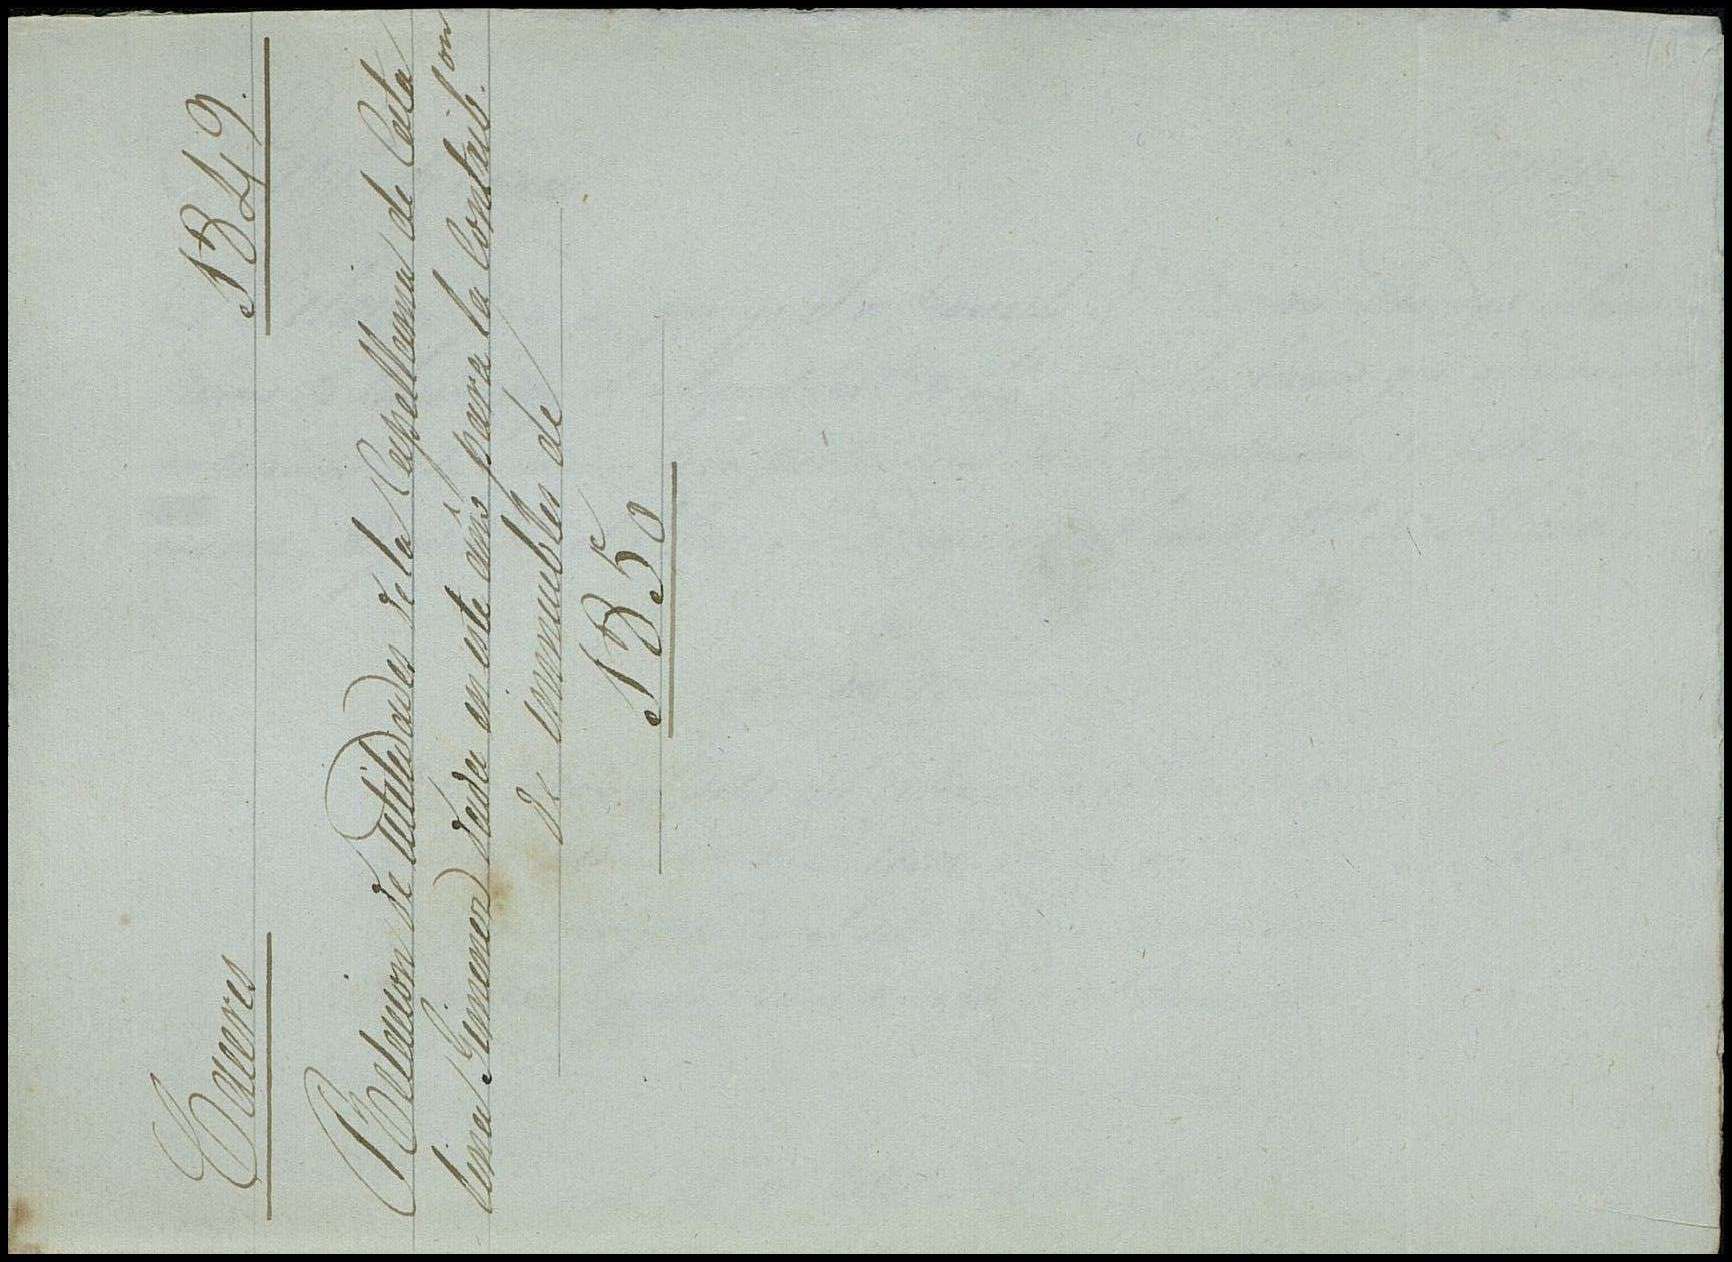 Caceres 1849.
Relacion de Utilidades de la Capellania de Cata
lina Gimenez dada en este año para la Contrib.on
de inmuebles de
1850